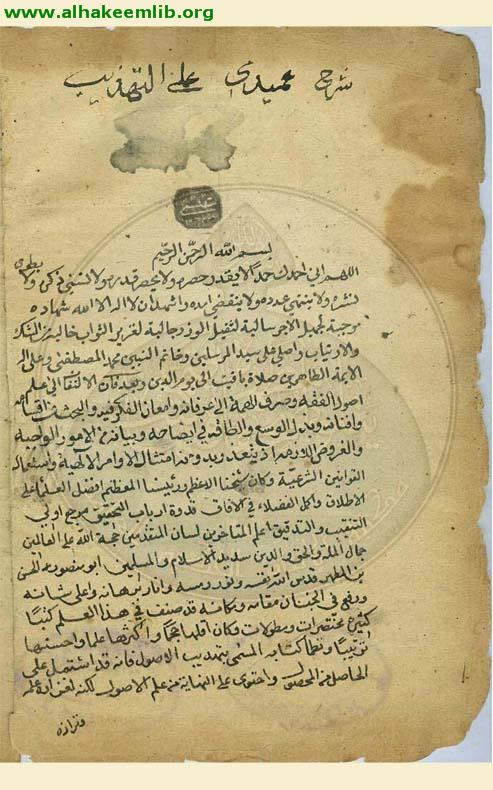 www.alhakeemlib.org
شرح عميدي على التهذيب
بسم الله الرحمن الرحيم
اللهم اني احمدك حمدا لا يقدر حصره ولا يحصر قدره ولا
نشره ولا ينتهي عدده ولا ينقضي امده واشهد ان لا اله الا الله شهادة
موجبة لجميل الاجر سالبة لثقيل الوزر جالبة لغزير الثواب خالية من الشك
والارتياب واصلي على سيد المرسلين وخاتم النبيين محمد المصطفى وعلى اله
الايمة الطاهرين صلاة باقية الى يوم الدين وبعد فان الالتفات الى علم
اصول الفقه وصرف الهمة الى عرفانه وامعان الفكر فيه والبحث في اقسامه
وافنانه وبذل الوسع والطاقة في ايضاحه وبيانه من الامور الواجبة
والفروض اللازمة اذ يتعذر بدونه امتثال الاوامر الالهية واستعمال
القوانين الشرعية وكان شيخنا الاعظم ورئيسنا المعظم افضل العلماء على
الاطلاق واكمل الفضلاء في الافاق قدوة ارباب التحقيق مرجع اولي
التنقيب والتدقيق اعلم المتاخرين لسان المتقدمين حجة الله على العالمين
جمال الملة والحق والدين سديد الاسلام والمسلمين ابو منصور الحسن
بن المطهر قدس الله نفسه ونور رمسه وانار برهانه واعلى شانه
ورفع في الجنان مقامه ومكانه قد صنف في هذا العلم كتبا
كثيرة مختصرات ومطولات وكان اقلها حجما واكثرها علما واحسنها
ترتيبا ونظما كتابه المسمى بتهذيب الاصول فانه قد اشتمل على
الحاصل من المحصول واحتوى على النهاية من علم الاصول لكنه لغزارة علمه